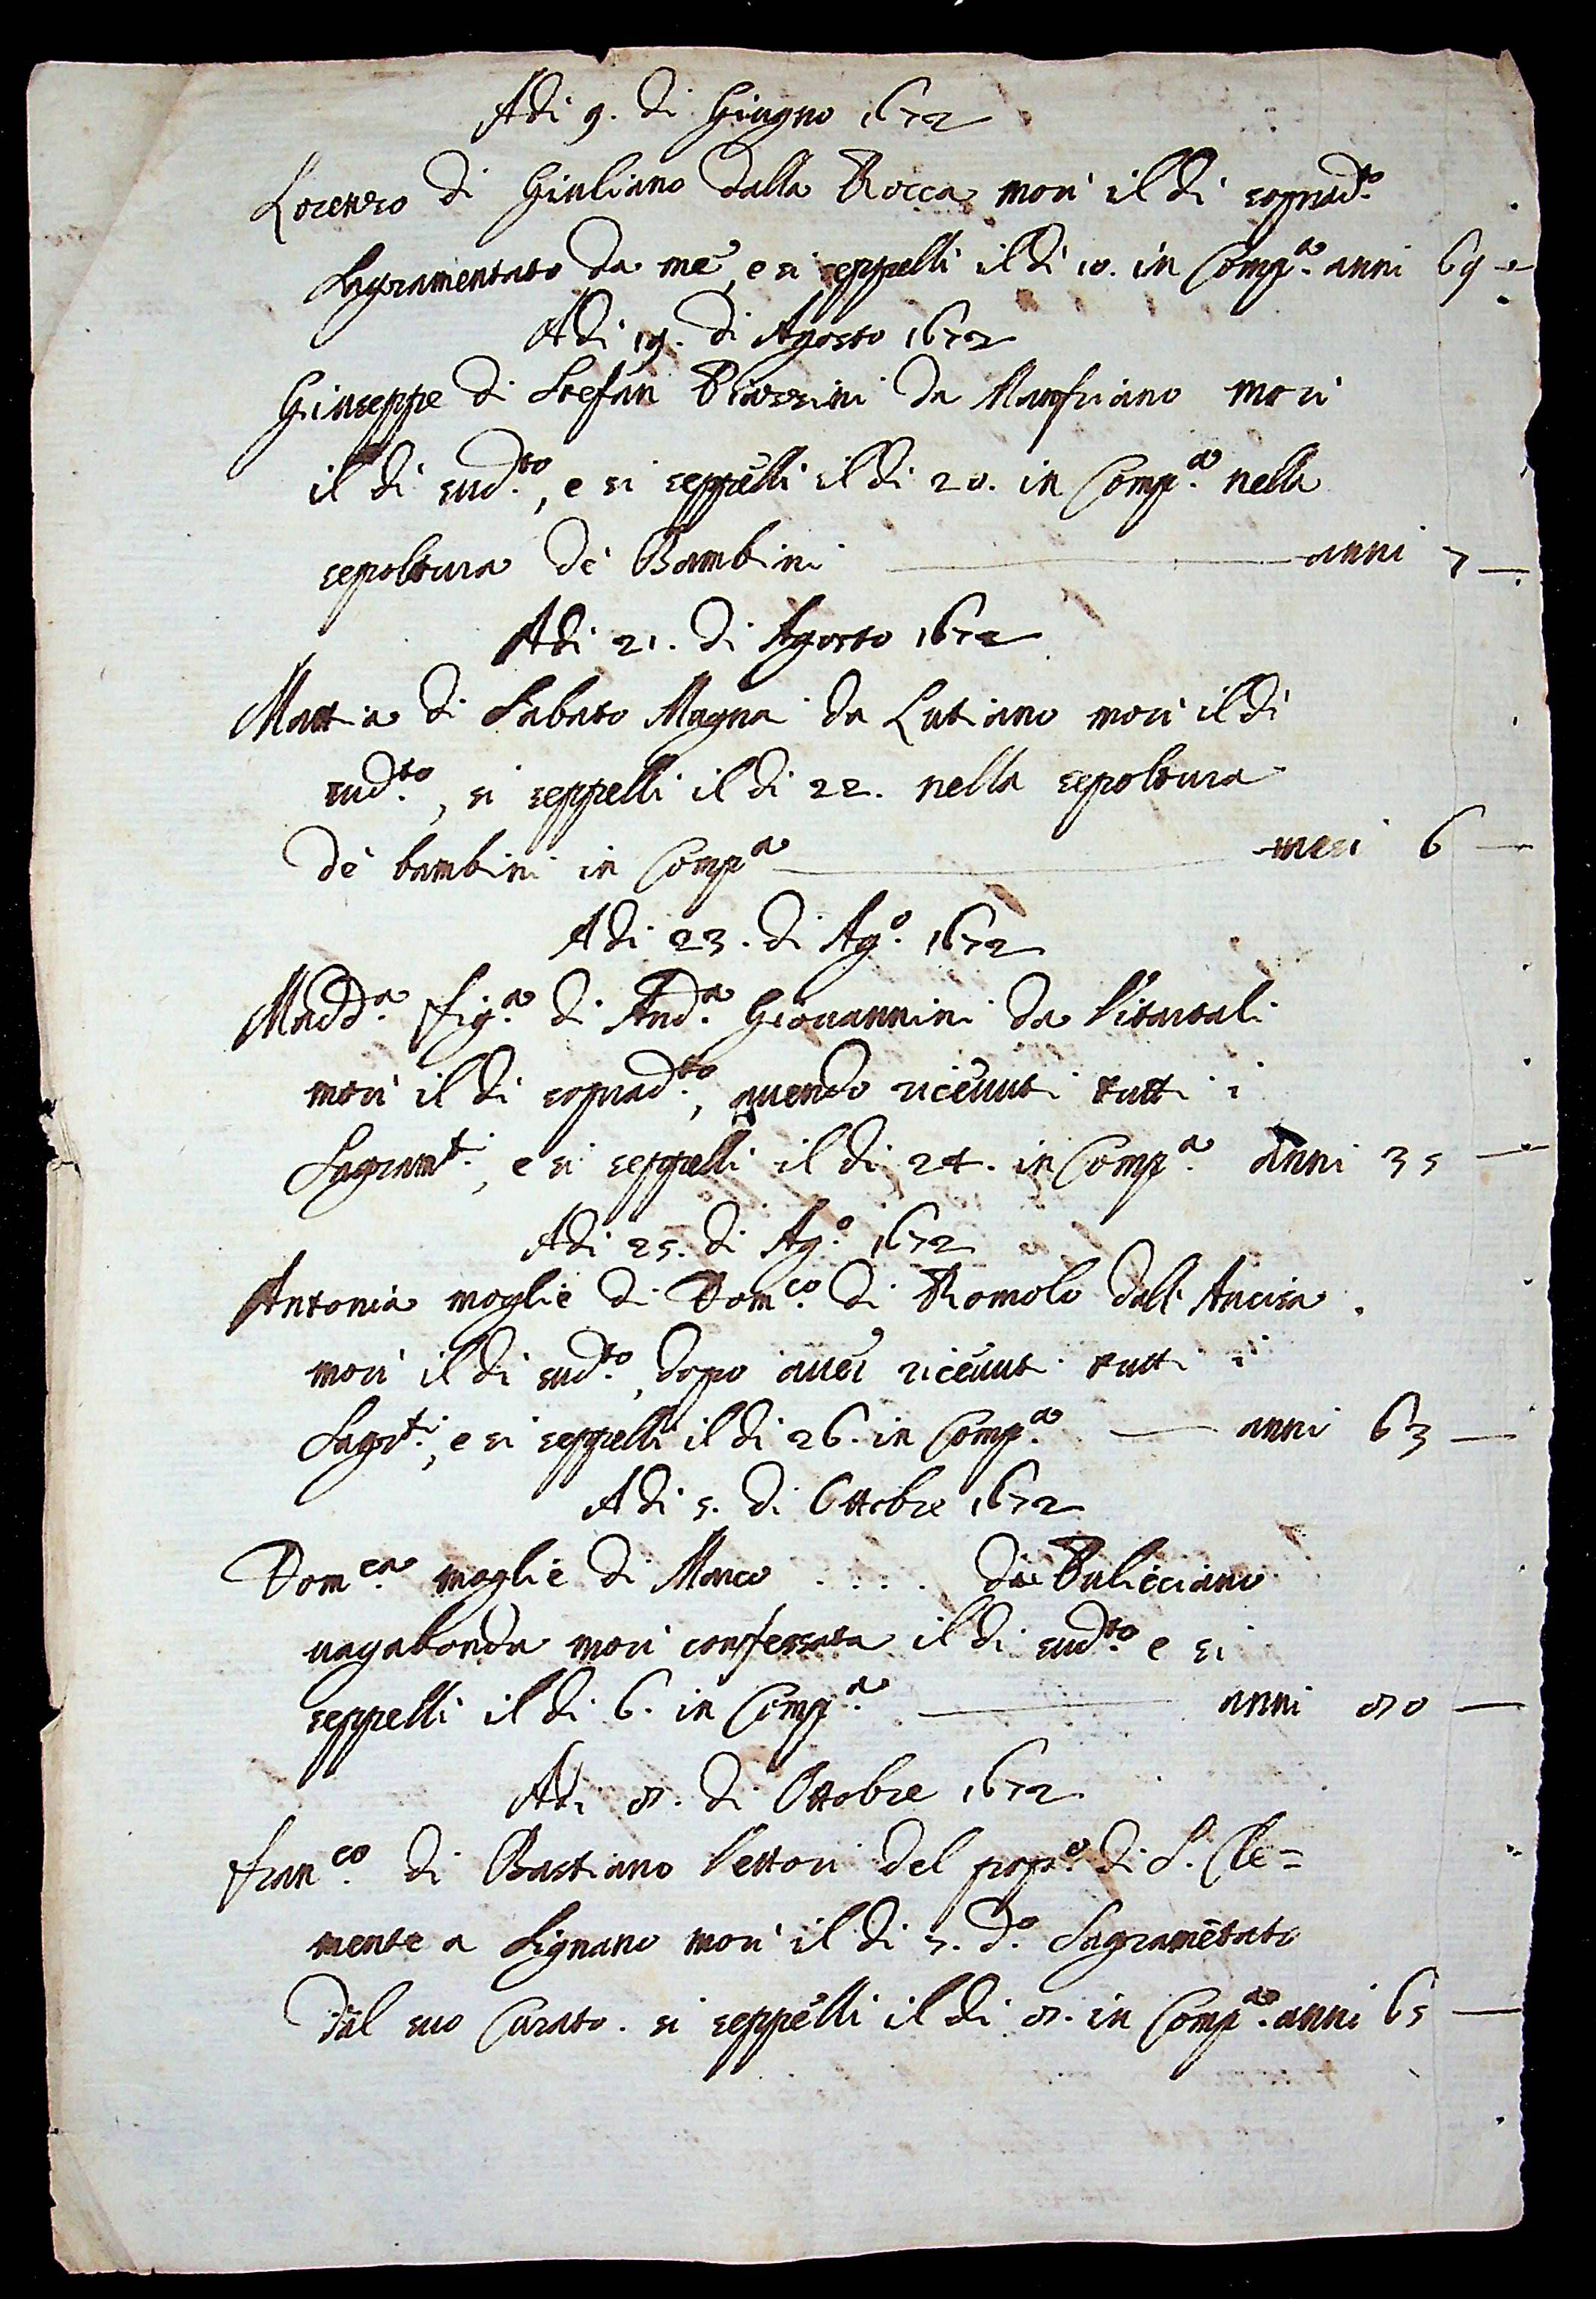 Adi 9. di Giugno 1672
Lorenzo di Giuliano dalla Rocca morì il dì soprad.to
Sagramentato da me, e si seppellì il dì 10. in Comp.a anni 69
Adi 19. di Agosto 1672
Giuseppe di Stefan da morì
il dì sud.to, e si seppellì il dì 20. in Comp.a nella
sepoltura de' Bambini anni 7
Adi 21. di Agosto 1672
Mattia di Sabato Magnai da Lutiano morì il dì
sud.to, si seppellì il dì 22. nella sepoltura
de' bambini in Comp.a mesi 6
Adi 23. di Ag.o 1672
Madd.a fig.a di And.a Giovannini da
morì il dì soprad.to, avendo ricevuti tutti i
Sagram.ti, e si seppellì il dì 24. in Comp.a anni 35
Adi 25. di Ag.o 1672
Antonia moglie di Dom.co di Romolo dall'Ancisa
morì il dì sud.to, dopo aver ricevuti tutti i
Sagr.ti, e si seppellì il dì 26. in Comp.a anni 63
Adi 5. di Ottobre 1672
Dom.ca moglie di Marco .... da Pulicciano
vagabonda morì confessata il dì sud.to e si
seppellì il dì 6. in Comp.a anni 80
Adi 8. di Ottobre 1672
Fran.co di Bastiano Vettori del pop.o di S. Cle=
mente a Signano morì il dì 7. d.o Sagramētato
dal suo Curato. si seppellì il dì 8. in Comp.a anni 65